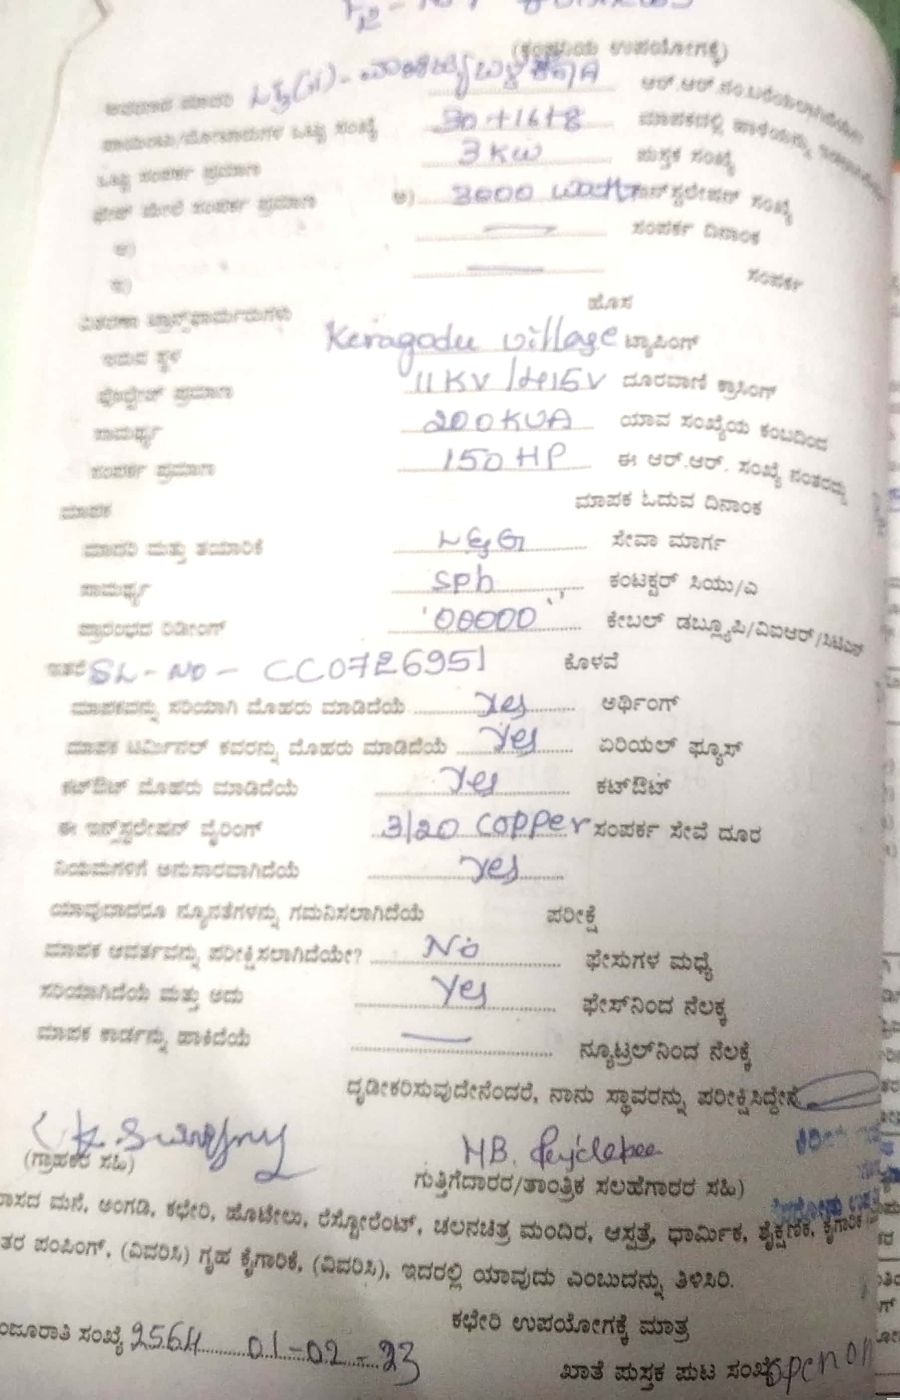 (ಕಂಪನಿಯ ಉಪಯೋಗಕ್ಕೆ)
30+16+8
ಒಟ್ಟು ಸಂಪರ್ಕ ಪ್ರಮಾಣ 3 KW ಪುಸ್ತಕ ಸಂಖ್ಯೆ
ಫೇಸ್ ಮೇಲೆ ಸಂಪರ್ಕ ಪ್ರಮಾಣ ಅ) 3000 watt ಇನ್‌ಸ್ಟಲೇಷನ್ ಸಂಖ್ಯೆ
ಆ) ಸಂಪರ್ಕ ದಿನಾಂಕ
ಇ) ಸಂಪರ್ಕ
ವಿತರಣಾ ಟ್ರಾನ್ಸ್‌ಫಾರ್ಮರುಗಳು ಹೊಸ
ಇರುವ ಸ್ಥಳ Keragodu village ಟ್ಯಾಪಿಂಗ್
ವೋಲ್ಟೇಜ್ ಪ್ರಮಾಣ 11KV/415V ದೂರವಾಣಿ ಕ್ರಾಸಿಂಗ್
ಸಾಮರ್ಥ್ಯ 200KVA ಯಾವ ಸಂಖ್ಯೆಯ ಕಂಬದಿಂದ
ಸಂಪರ್ಕ ಪ್ರಮಾಣ 150 HP ಈ ಆರ್.ಆರ್. ಸಂಖ್ಯೆ ನಂತರದ್ದು
ಮಾಪಕ ಮಾಪಕ ಓದುವ ದಿನಾಂಕ
ಮಾದರಿ ಮತ್ತು ತಯಾರಿಕೆ L&G ಸೇವಾ ಮಾರ್ಗ
ಸಾಮರ್ಥ್ಯ sph ಕಂಟಕ್ಟರ್ ಸಿಯು/ಎ
ಪ್ರಾರಂಭದ ರಿಡೀಂಗ್ '00000'' ಕೇಬಲ್ ಡಬ್ಲ್ಯೂಪಿ/ವಿಐಆರ್/ಸಿಟಿಎಸ್
ಇತರೆ SL-NO- CC0726951 ಕೊಳವೆ
ಮಾಪಕವನ್ನು ಸರಿಯಾಗಿ ಮೊಹರು ಮಾಡಿದೆಯೆ yes ಅರ್ಥಿಂಗ್
ಮಾಪಕ ಟರ್ಮಿನಲ್ ಕವರನ್ನು ಮೊಹರು ಮಾಡಿದೆಯೆ yes ಏರಿಯಲ್ ಫ್ಯೂಸ್
ಕಟ್‌ಔಟ್ ಮೊಹರು ಮಾಡಿದೆಯೆ yes ಕಟ್‌ಔಟ್
ಈ ಇನ್ಸ್‌ಸ್ಟಲೇಷನ್ ವೈರಿಂಗ್ 3/20 copper ಸಂಪರ್ಕ ಸೇವೆ ದೂರ
ನಿಯಮಗಳಿಗೆ ಅನುಸಾರವಾಗಿದೆಯೆ yes
ಯಾವುದಾದರೂ ನ್ಯೂನತೆಗಳನ್ನು ಗಮನಿಸಲಾಗಿದೆಯೆ ಪರೀಕ್ಷೆ
ಮಾಪಕ ಆವರ್ತವನ್ನು ಪರೀಕ್ಷಿಸಲಾಗಿದೆಯೇ? No ಫೇಸುಗಳ ಮಧ್ಯೆ
ಸರಿಯಾಗಿದೆಯೆ ಮತ್ತು ಅದು Yes ಫೇಸ್‌ನಿಂದ ನೆಲಕ್ಕೆ
ಮಾಪಕ ಕಾರ್ಡನ್ನು ಹಾಕಿದೆಯೆ ನ್ಯೂಟ್ರಲ್‌ನಿಂದ ನೆಲಕ್ಕೆ
ದೃಡೀಕರಿಸುವುದೇನೆಂದರೆ, ನಾನು ಸ್ಥಾವರನ್ನು ಪರೀಕ್ಷಿಸಿದ್ದೇನೆ
(ಗ್ರಾಹಕರ ಸಹಿ)
ಗುತ್ತಿಗೆದಾರರ/ತಾಂತ್ರಿಕ ಸಲಹೆಗಾರರ ಸಹಿ)
ವಾಸದ ಮನೆ, ಅಂಗಡಿ, ಕಛೇರಿ, ಹೊಟೇಲು, ರೆಸ್ಟೋರೆಂಟ್, ಚಲನಚಿತ್ರ ಮಂದಿರ, ಆಸ್ಪತ್ರೆ, ಧಾರ್ಮಿಕ, ಶೈಕ್ಷಣಿಕ, ಕೈಗಾರಿಕ
ತರ ಪಂಪಿಂಗ್, (ವಿವರಿಸಿ) ಗೃಹ ಕೈಗಾರಿಕೆ, (ವಿವರಿಸಿ), ಇದರಲ್ಲಿ ಯಾವುದು ಎಂಬುದನ್ನು ತಿಳಿಸಿರಿ.
ಕಛೇರಿ ಉಪಯೋಗಕ್ಕೆ ಮಾತ್ರ
ಸಂಖ್ಯೆ 2564 01-02-23
ಖಾತೆ ಪುಸ್ತಕ ಪುಟ ಸಂಖ್ಯೆ open on